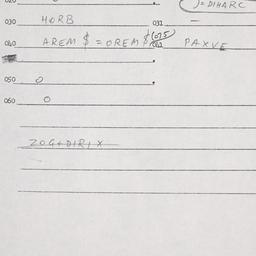 020
) = DIHARC
030 HORB 031 —
040 AREM $ = OREM $ (025) 041 PAXVE
050 0
060 0
ZOG+DIRIX